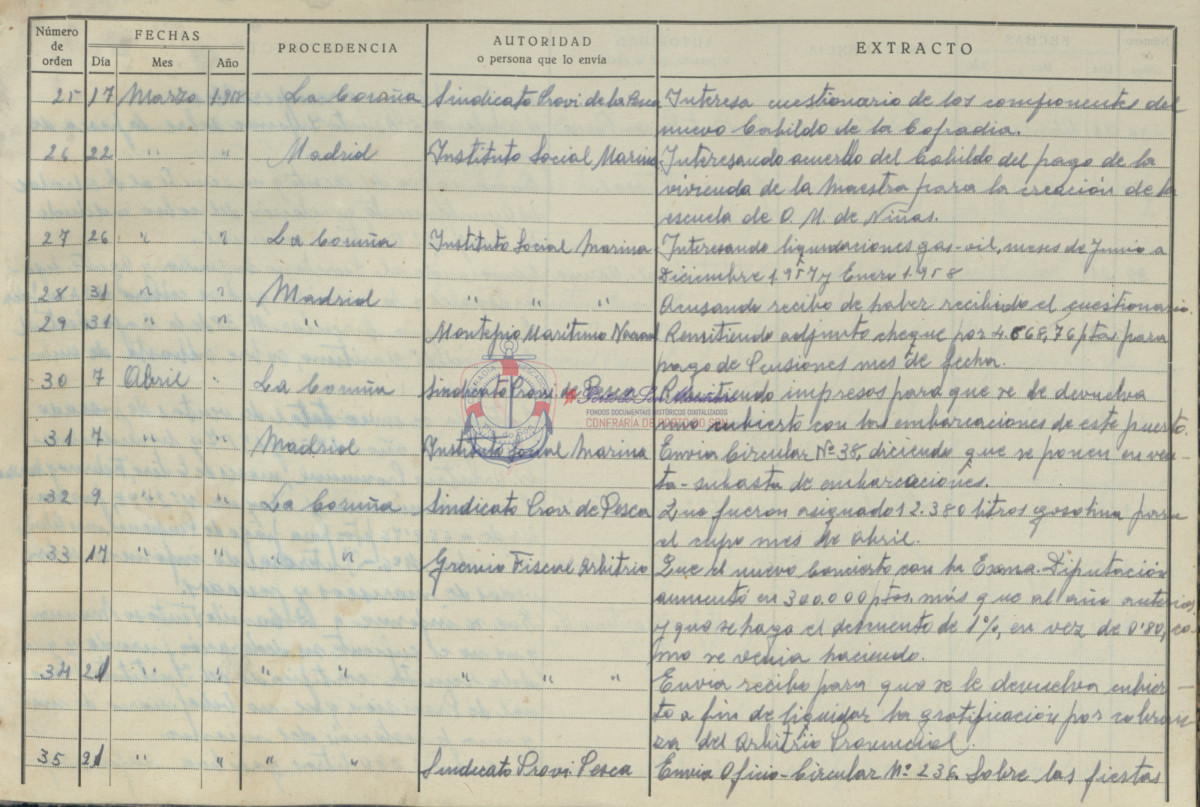 Número de orden | FECHAS | PROCEDENCIA | AUTORIDAD o persona que lo envía | EXTRACTO
Día | Mes | Año
25 17 Marzo 1.958 La Coruña Sindicato Provi de la Pesca Interesa cuestionario de los componentes del
nuevo Cabildo de la Cofradia.
26 22 " " Madrid Instituto Social Marina Interesando acuerdo del Cabildo del pago de la
vivienda de la Maestra para la creación de la
escuela de O. M. de Niñas.
27 26 " " La Coruña Instituto Social Marina Interesando liquidaciones gas-oil, meses de Junio a
Diciembre 1.957 y Enero 1.958
28 31 " " Madrid " " " Acusando recibo de haber recibido el cuestionario.
29 31 " " " Montepio Maritimo Nacional Remitiendo adjunto cheque por 4.668,76 ptas para
pago de Pensiones mes de fecha.
30 7 Abril " La Coruña Sindicato Provi de Pesca Remitiendo impresos para que se devuelva
uno cubierto con las embarcaciones de este puerto.
31 7 " " Madrid Instituto Social Marina Envia Circular Nº 38, diciendo que se ponen en ven-
ta-subasta de embarcaciones.
32 9 " " La Coruña Sindicato Provi de Pesca Que fueron asignados 12.380 litros gasolina para
el cupo mes de Abril.
33 17 " " " " Gremio Fiscal Arbitrio Que el nuevo Concierto con la Exma. Diputación
aumentó en 300.000 ptas. más que al año anterior
y que se haga el descuento de 1%, en vez de 0'80, co-
mo se venia haciendo.
34 21 " " " " " " " Envia recibo para que se le devuelva cubier-
to a fin de liquidar la gratificación por cobran-
za del Arbitrio Provincial.
35 21 " " " " Sindicato Provi. Pesca Envia Oficio-Circular Nº 236. Sobre las fiestas
FONDOS DOCUMENTAIS HISTÓRICOS DIGITALIZADOS
CONFRARÍA DE PORTO DO SON